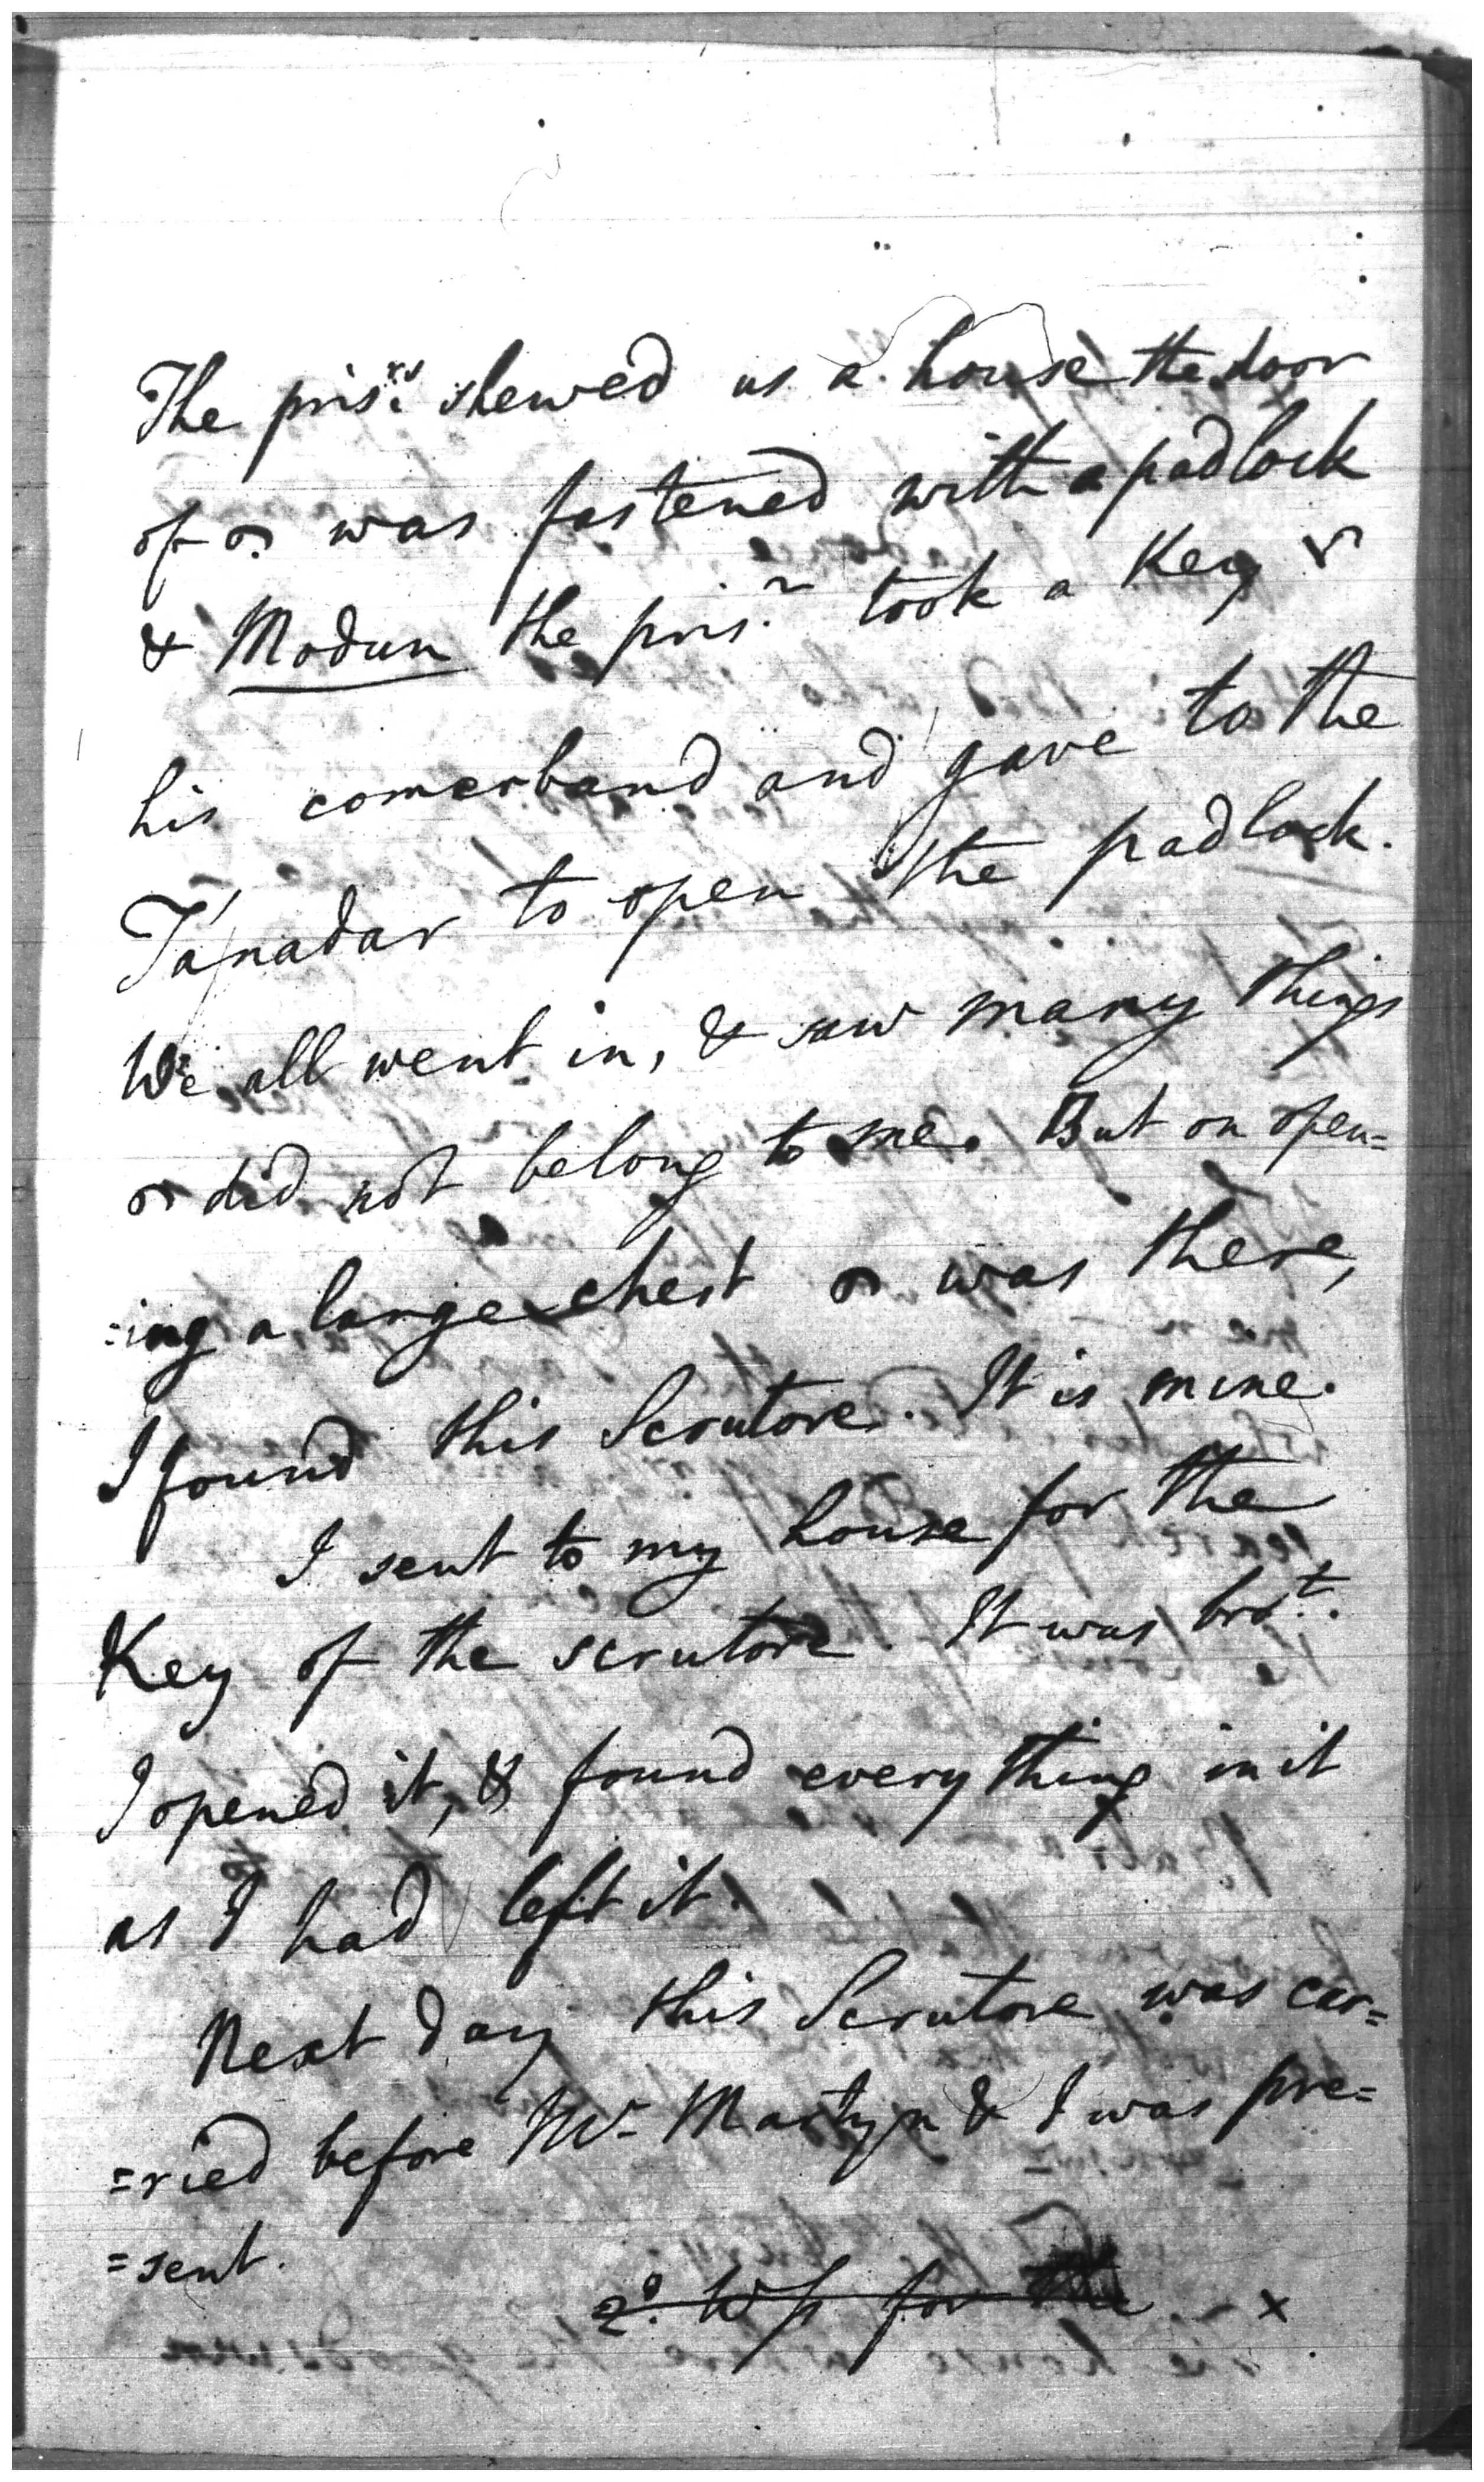 The pris.rs shewed us a house the door
of was fastened with a padlock
& Modun the pris.r took a Key
his comerband and gave to the
Tánadar to open the padlock.
We all went in, & saw many things
did not belong to me. But on open=
=ing a large chest was there,
I found this Scrutore. It is mine.
I sent to my house for the
Key of the scrutore. It was bro.t.
I opened it, & found every thing in it
as I had left it.
Next day this Scrutore was car=
=ried before Mr. Martyn & I was pre=
=sent.
2d. Wss for the x